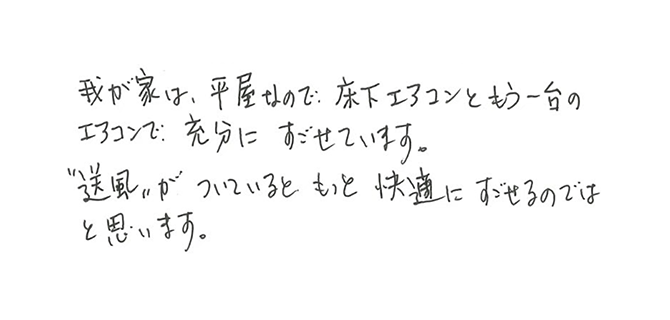 我が家は、平屋なので、床下エアコンともう一台の
エアコンで、充分に すごせています。
"送風"が ついていると もっと 快適に すごせるのでは
と思います。